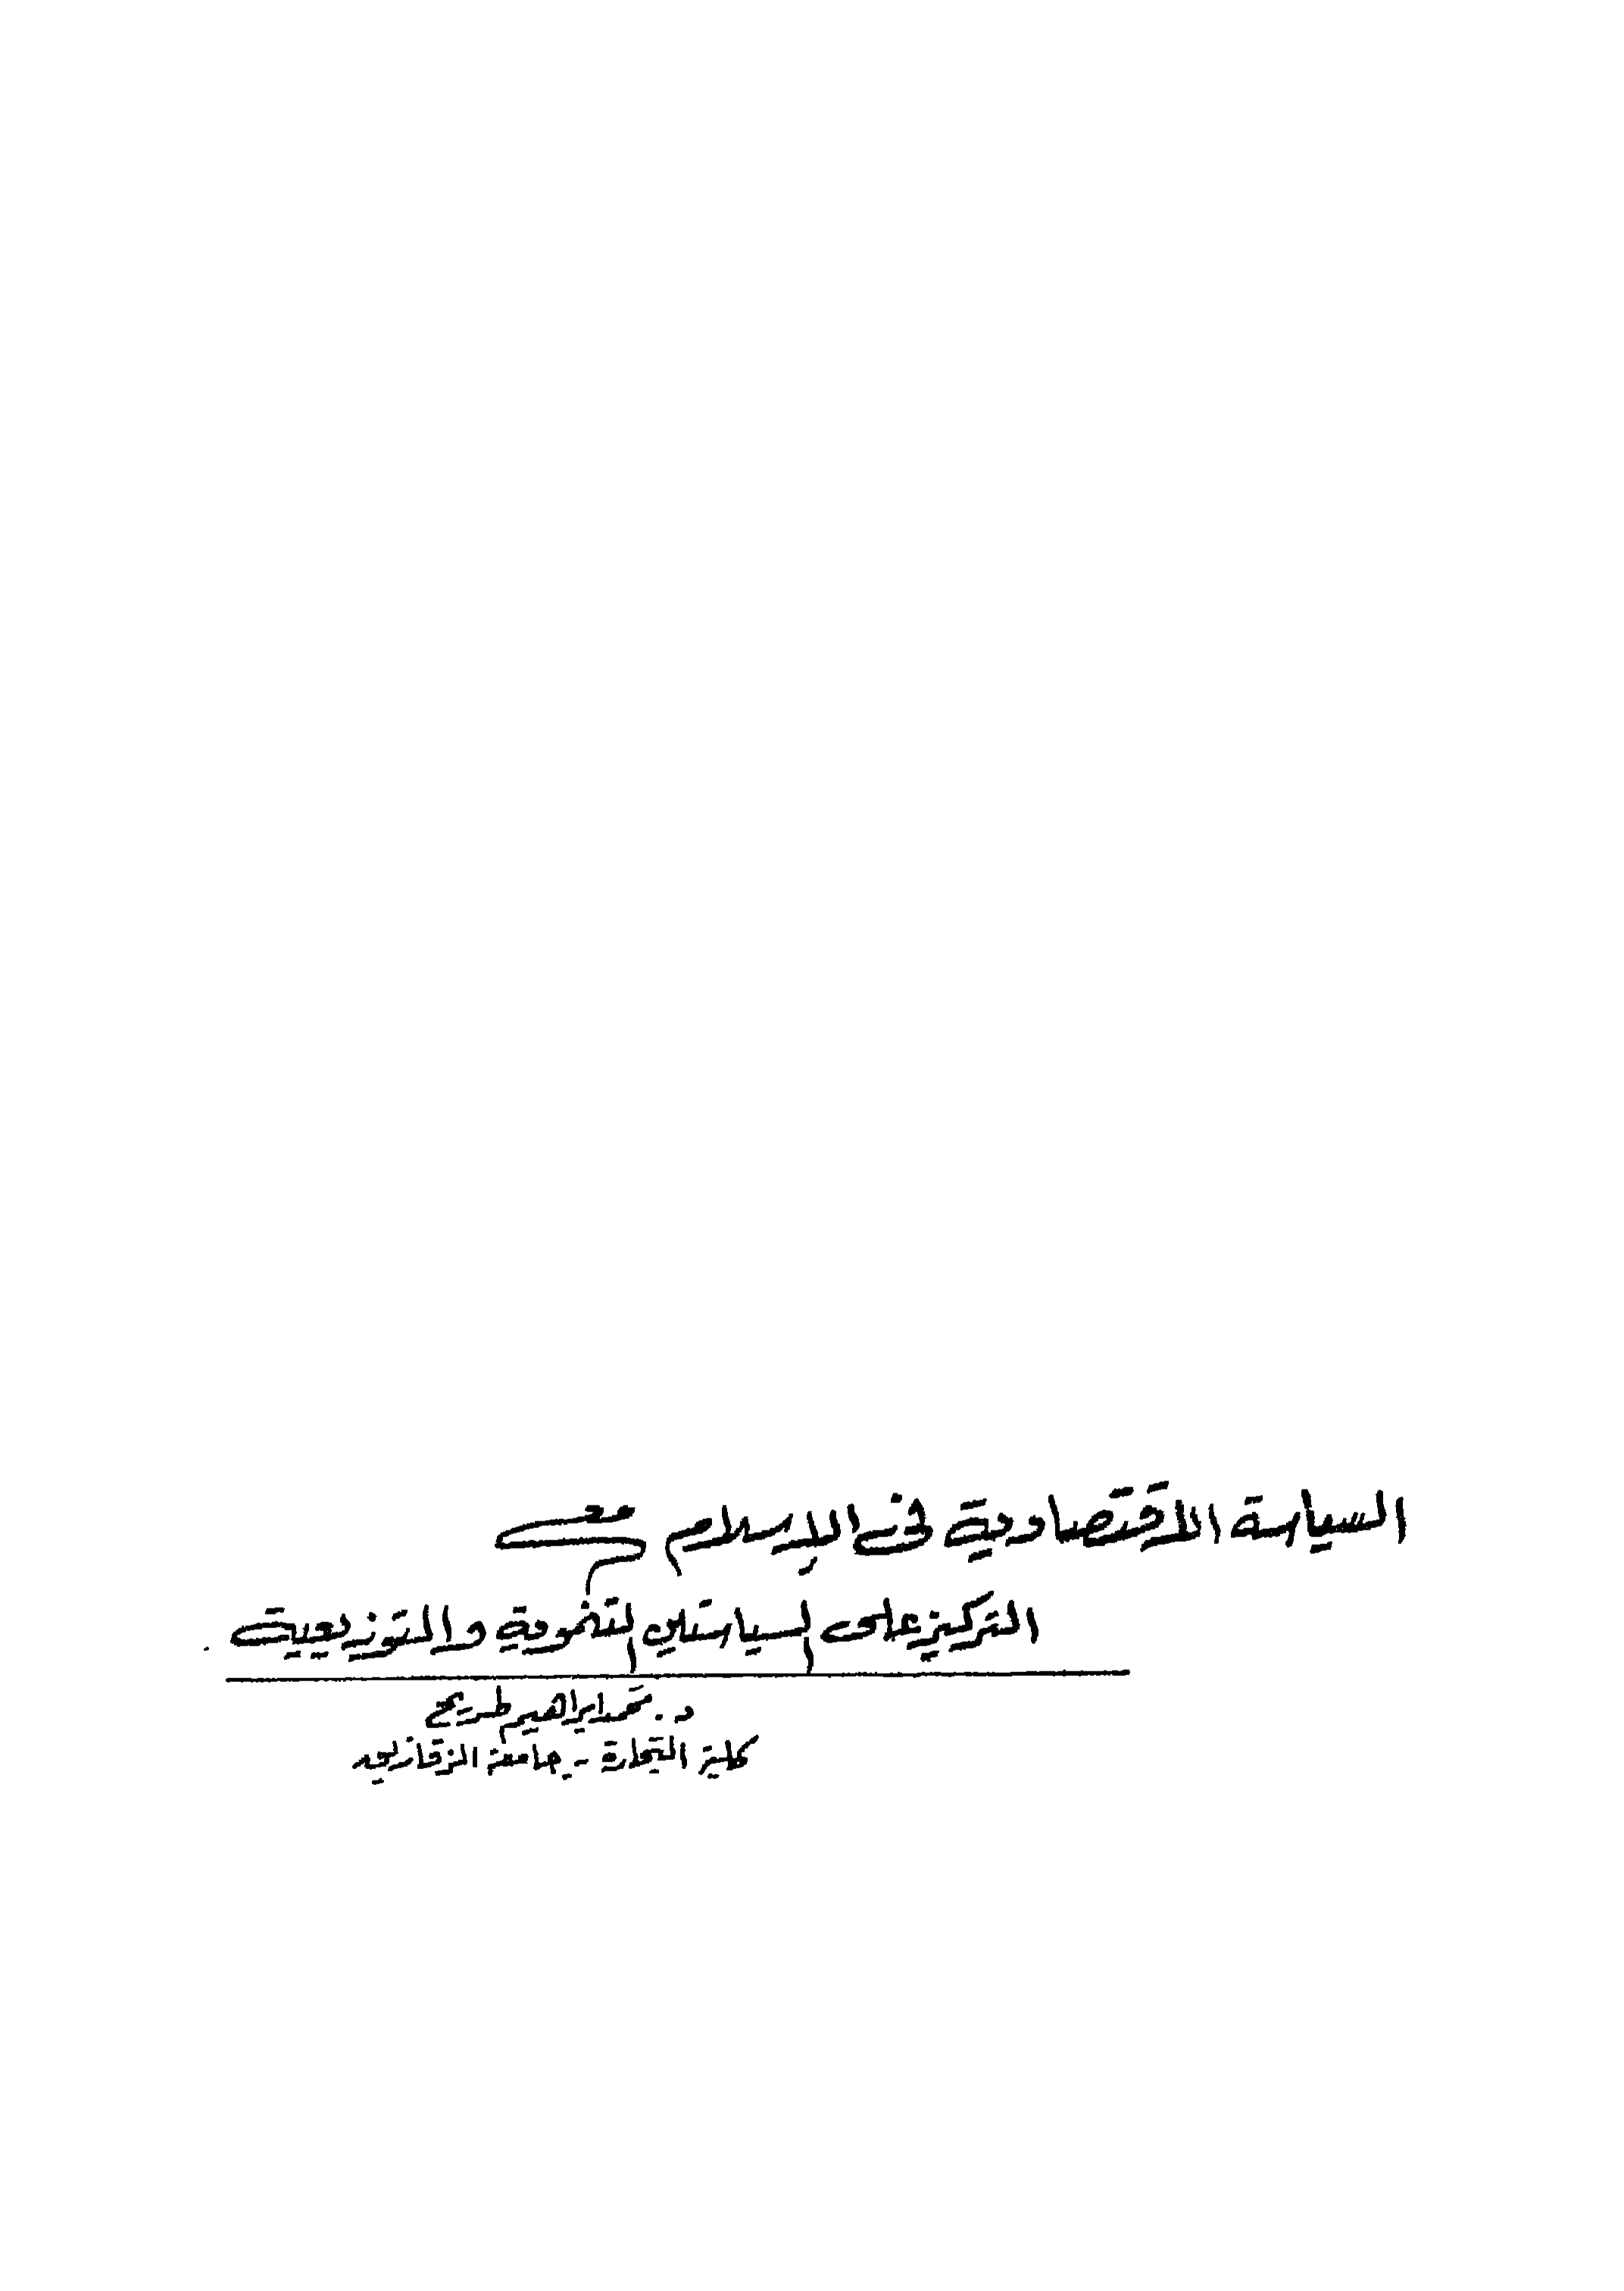 السياسة الاقتصادية فى الإسلام مع
التركيز على السياستين التنموية والتوزيعية .
د. محمد ابراهيم طريح
كلية التجارة - جامعة الزقازيق